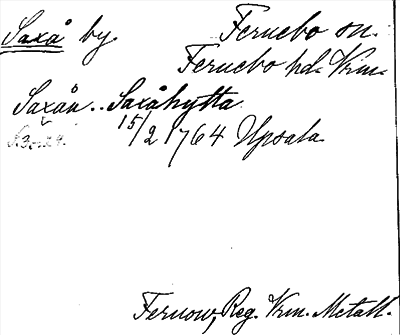 Saxå by. Fernebo sn.
Fernebo hd. Vrm.
Saxån.. Saxåhytta
15/2 1764 Upsala
Fernow, Reg. Vrm. Metall.